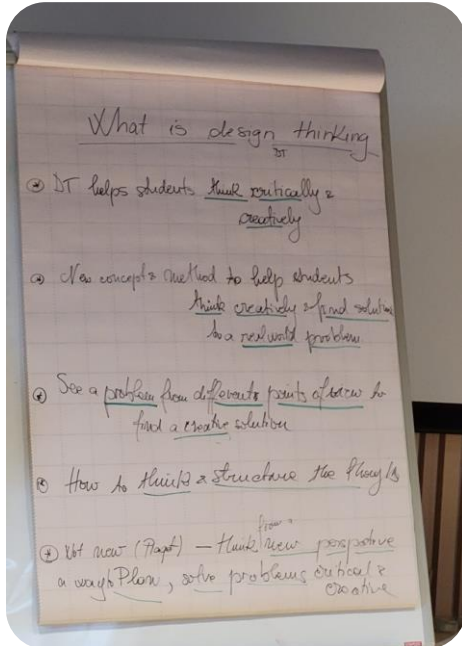 What is design thinking
DT
DT helps students think critically &
creatively
New concept & method to help students
think creatively & find solution
to a real world problem
See a problem from different points of view to
find a creative solution
How to think & structure the
from a
Not new (Piaget) — think new perspective
a way to Plan, solve problems critical &
creative